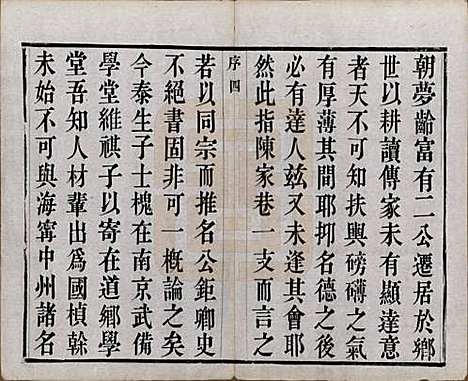 朝夢齡富有二公遷居於鄉
世以耕讀傳家未有顯達意
者天不可知扶輿磅礴之氣
有厚薄其間耶抑名德之後
必有達人玆又未逢其會耶
然此指陳家巷一支而言之
序四
若以同宗而推名公鉅卿史
不絕書固非可一概論之矣
今泰生子士槐在南京武備
學堂維祺子以寄在道鄉學
堂吾知人材輩出爲國楨榦
未始不可與海甯中州諸名